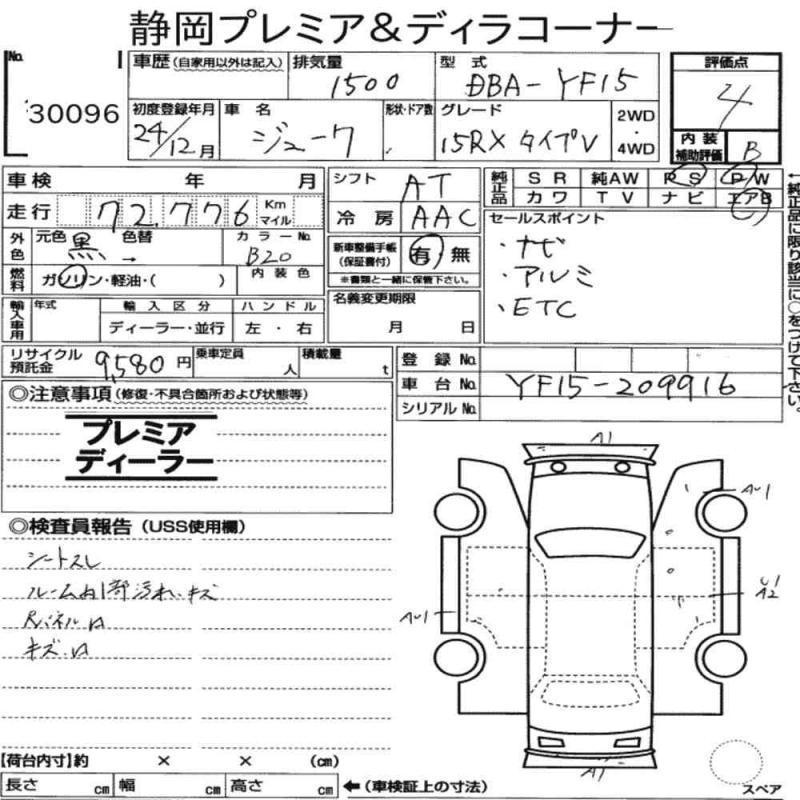 静岡プレミア&ディラコーナー
No. 30096
車歴(自家用以外は記入) 排気量 1500 型式 DBA-YF15
評価点 4
初度登録年月 24/12月 車名 ジューク 形状・ドア数 グレード 15RXタイプV 2WD・4WD
内装補助評価 B
車検 年 月
走行 72,776 Km マイル
外色 元色 黒 色替 → カラーNo. B20
燃料 ガソリン・軽油・( ) 内装色
輸入車用 年式 輸入区分 ディーラー・並行 ハンドル 左・右
シフト AT
冷房 AAC
新車整備手帳(保証書付) 有 無
※書類と一緒に保管下さい。
名義変更期限 月 日
純正品 SR 純AW PS PW
カワ TV ナビ エアB
セールスポイント
・ナビ
・アルミ
・ETC
←純正品に限り該当に○をつけて下さい。
リサイクル預託金 9,580円 乗車定員 人 積載量 t
登録No.
車台No. YF15-209916
シリアルNo.
◎注意事項(修復・不具合箇所および状態等)
プレミア
ディーラー
◎検査員報告(USS使用欄)
シートスレ
ルーム内1部汚れ、キズ
Rパネルロ
キズ、ロ
A1
AU1
U1
A2
AU1
A1
スペア
【荷台内寸】約 × × (cm)
長さ cm 幅 cm 高さ cm ←(車検証上の寸法)